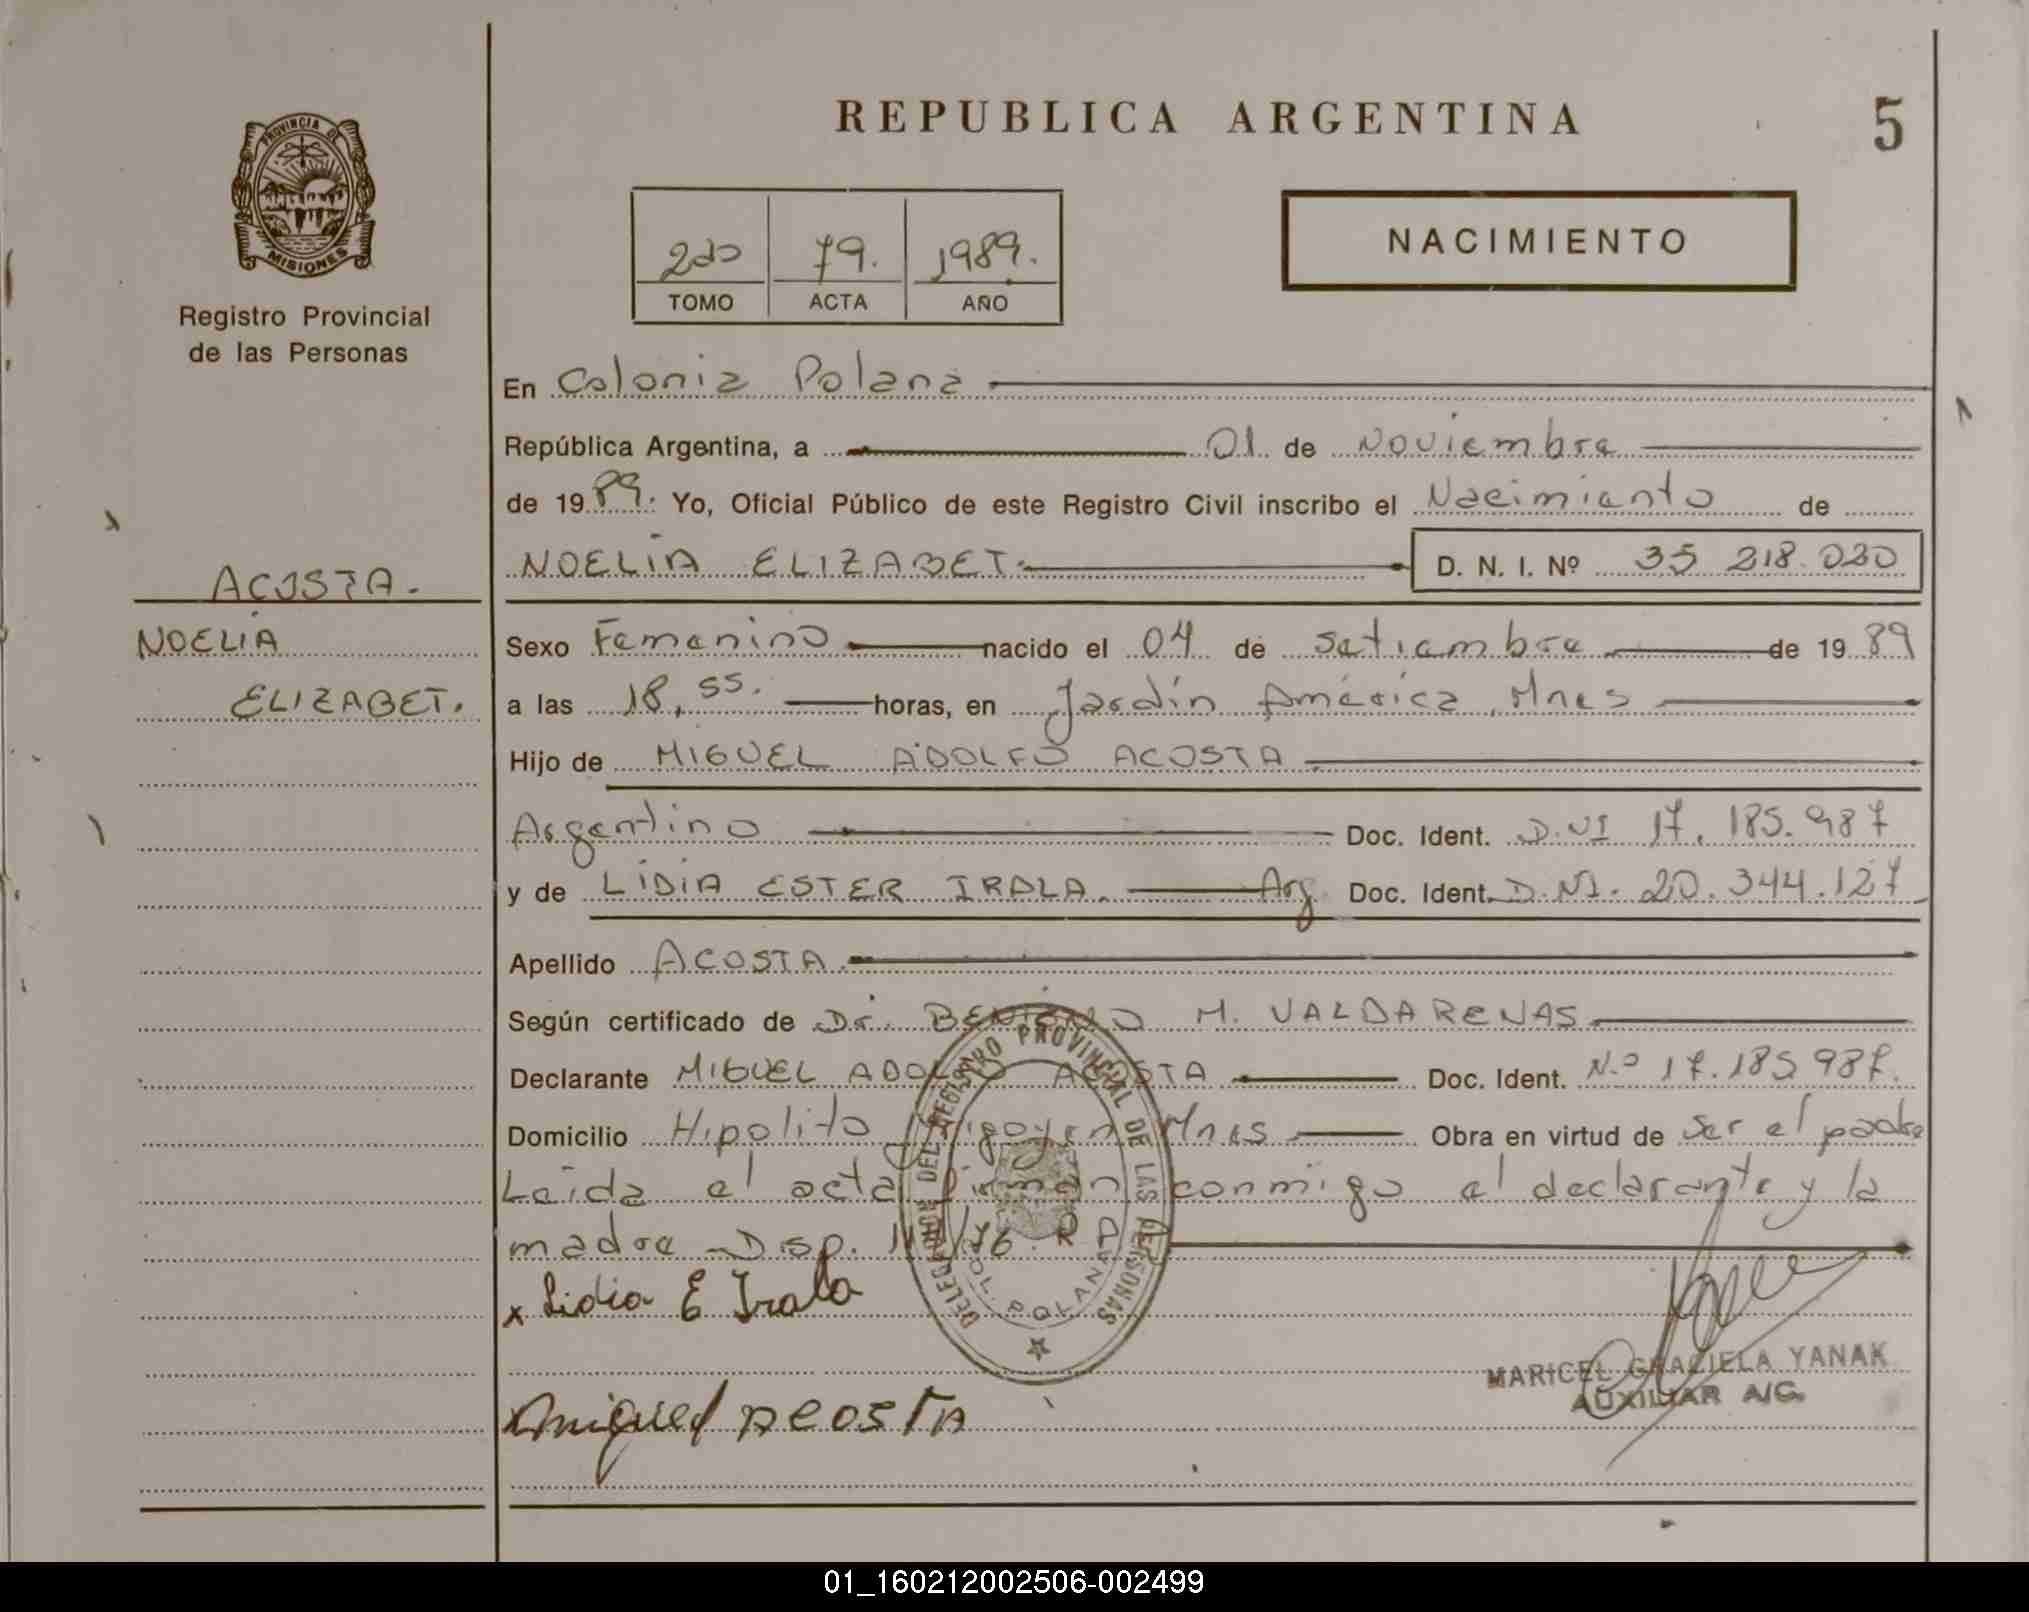 REPUBLICA ARGENTINA
5
PROVINCIA DE
MISIONES
Registro Provincial
de las Personas
2do 79. 1989.
TOMO ACTA AÑO
NACIMIENTO
En Colonia Polana
República Argentina, a 01 de Noviembre
de 1989. Yo, Oficial Público de este Registro Civil inscribo el Nacimiento de
NOELIA ELIZABET. D. N. I. Nº 35 218.020
ACOSTA.
NOELIA
ELIZABET.
Sexo Femenino nacido el 04 de setiembre de 1989
a las 18,55. horas, en Jardín América, Mnes
Hijo de MIGUEL ADOLFO ACOSTA
Argentino Doc. Ident. D.NI 17.185.987
y de LIDIA ESTER IRALA. Arg. Doc. Ident. D.NI. 20.344.127
Apellido ACOSTA.
Según certificado de Dr. BENIGNO M. VALDARENAS
Declarante MIGUEL ADOLFO ACOSTA Doc. Ident. N.º 17.185 987.
Domicilio Hipolito Yrigoyen Mnes Obra en virtud de ser el padre
Leida el acta firman conmigo el declarante y la
madre Disp. /76. R P
DELEGACION DEL REGISTRO PROVINCIAL DE LAS PERSONAS
COL. POLANA
x Lidia E Irala
Miguel ACOSTA
MARICEL GRACIELA YANAK
AUXILIAR A/C.
01_160212002506-002499